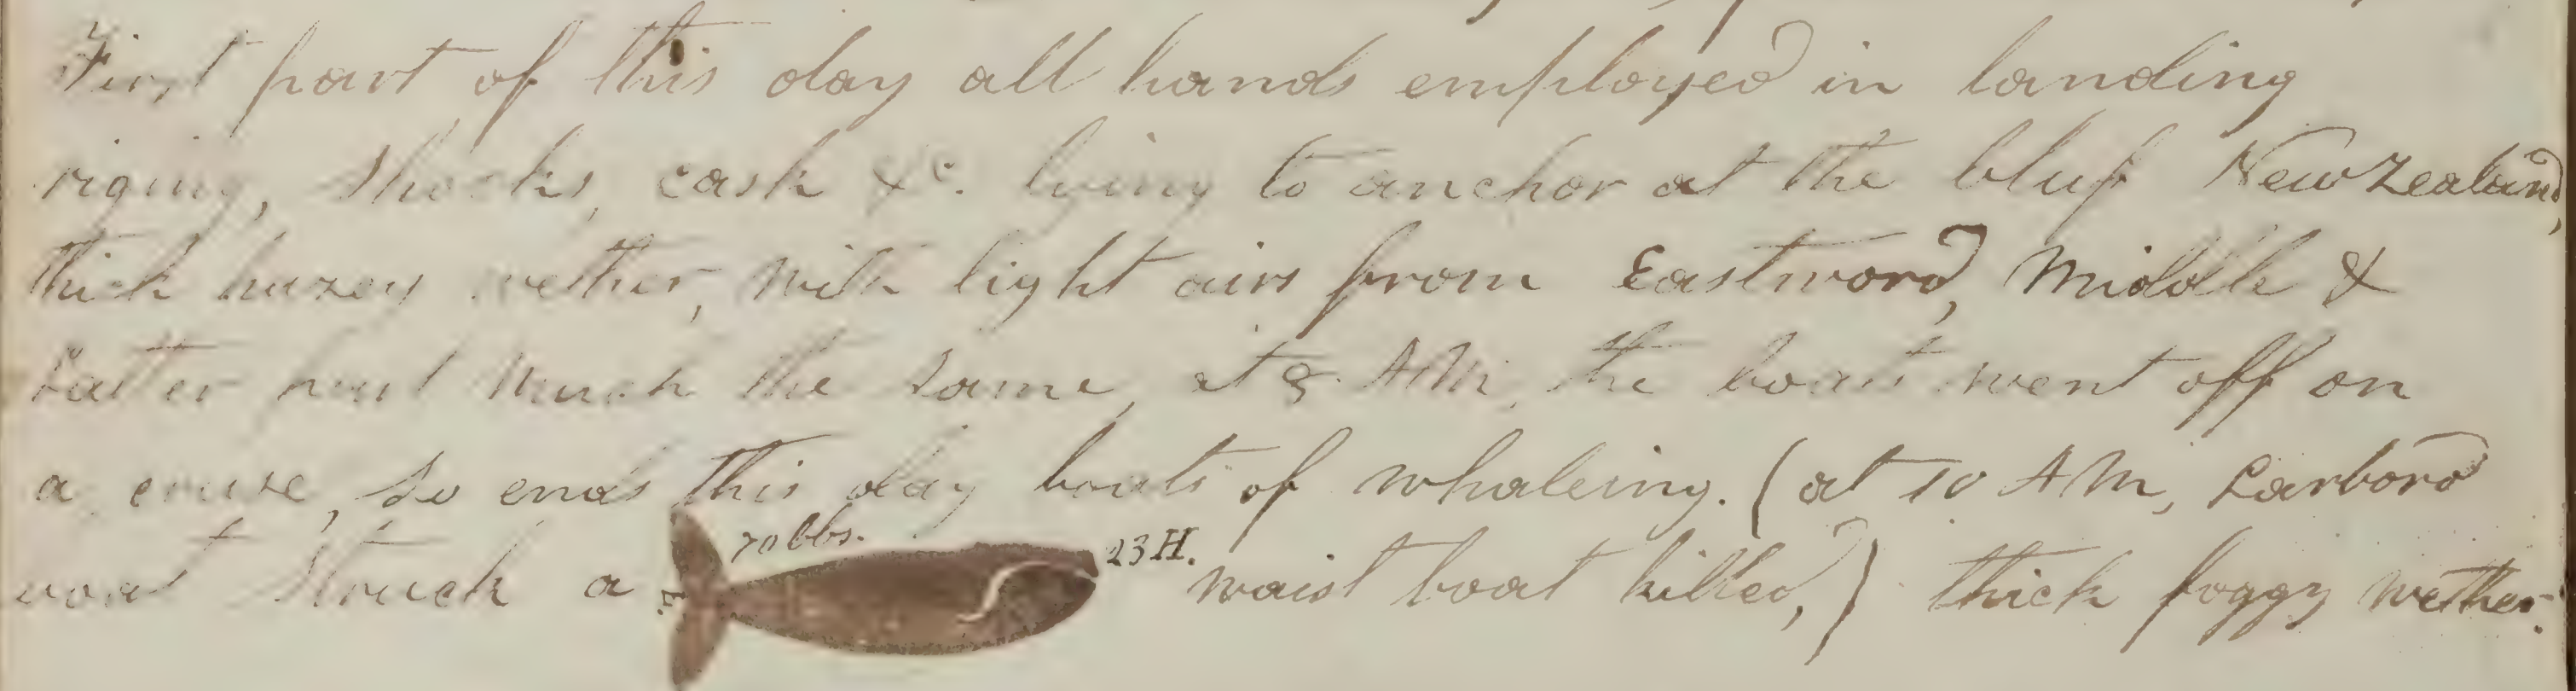 First part of this day all hands employed in landing
riging, Shooks, cask &c. lying to anchor at the bluf New Zealand,
thick hazey wether, with light airs from Eastword, Middle &
Latter part Much the Same, at 8 AM, the boats went off on
a cruse, So ends this day bouts of whaleing. (at 10 AM, Larbord
boat Struck a 70 bbs. 23 H. waist boat killed,) thick foggy wether.